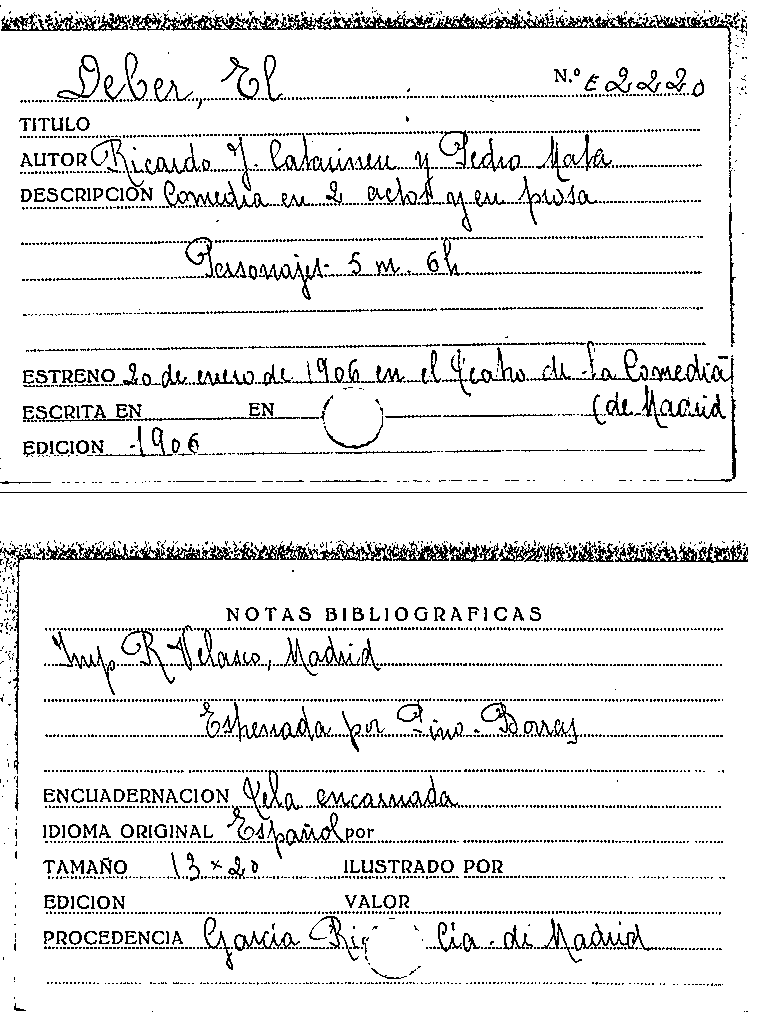 Deber, El N.º E 2220
TITULO
AUTOR Ricardo J. Catarineu y Pedro Mata
DESCRIPCION Comedia en 2 actos y en prosa
Personajes- 5 m. 6h
ESTRENO 20 de enero de 1906 en el Teatro de la Comedia
ESCRITA EN EN (de Madrid
EDICION 1906
NOTAS BIBLIOGRAFICAS
Imp R. Velasco, Madrid
por Pino - Borras
ENCUADERNACION Tela encarnada
IDIOMA ORIGINAL Español por
TAMAÑO 13 x 20 ILUSTRADO POR
EDICION VALOR
PROCEDENCIA Garcia Cia. de Madrid